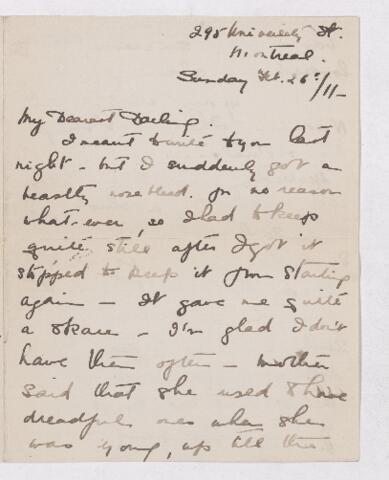 295 University St.
Montreal.
Sunday Feb. 26th/11-
My Dearest Darling.
I meant to write to you last
night - but I suddenly got a
beastly nose bleed. for no reason
what-ever, so I had to keep
quite still after I got it
stopped to keep it from starting
again - It gave me quite
a skare - I'm glad I don't
have them often - Mother
said that she used to have
dreadful ones when she
was young, up till the